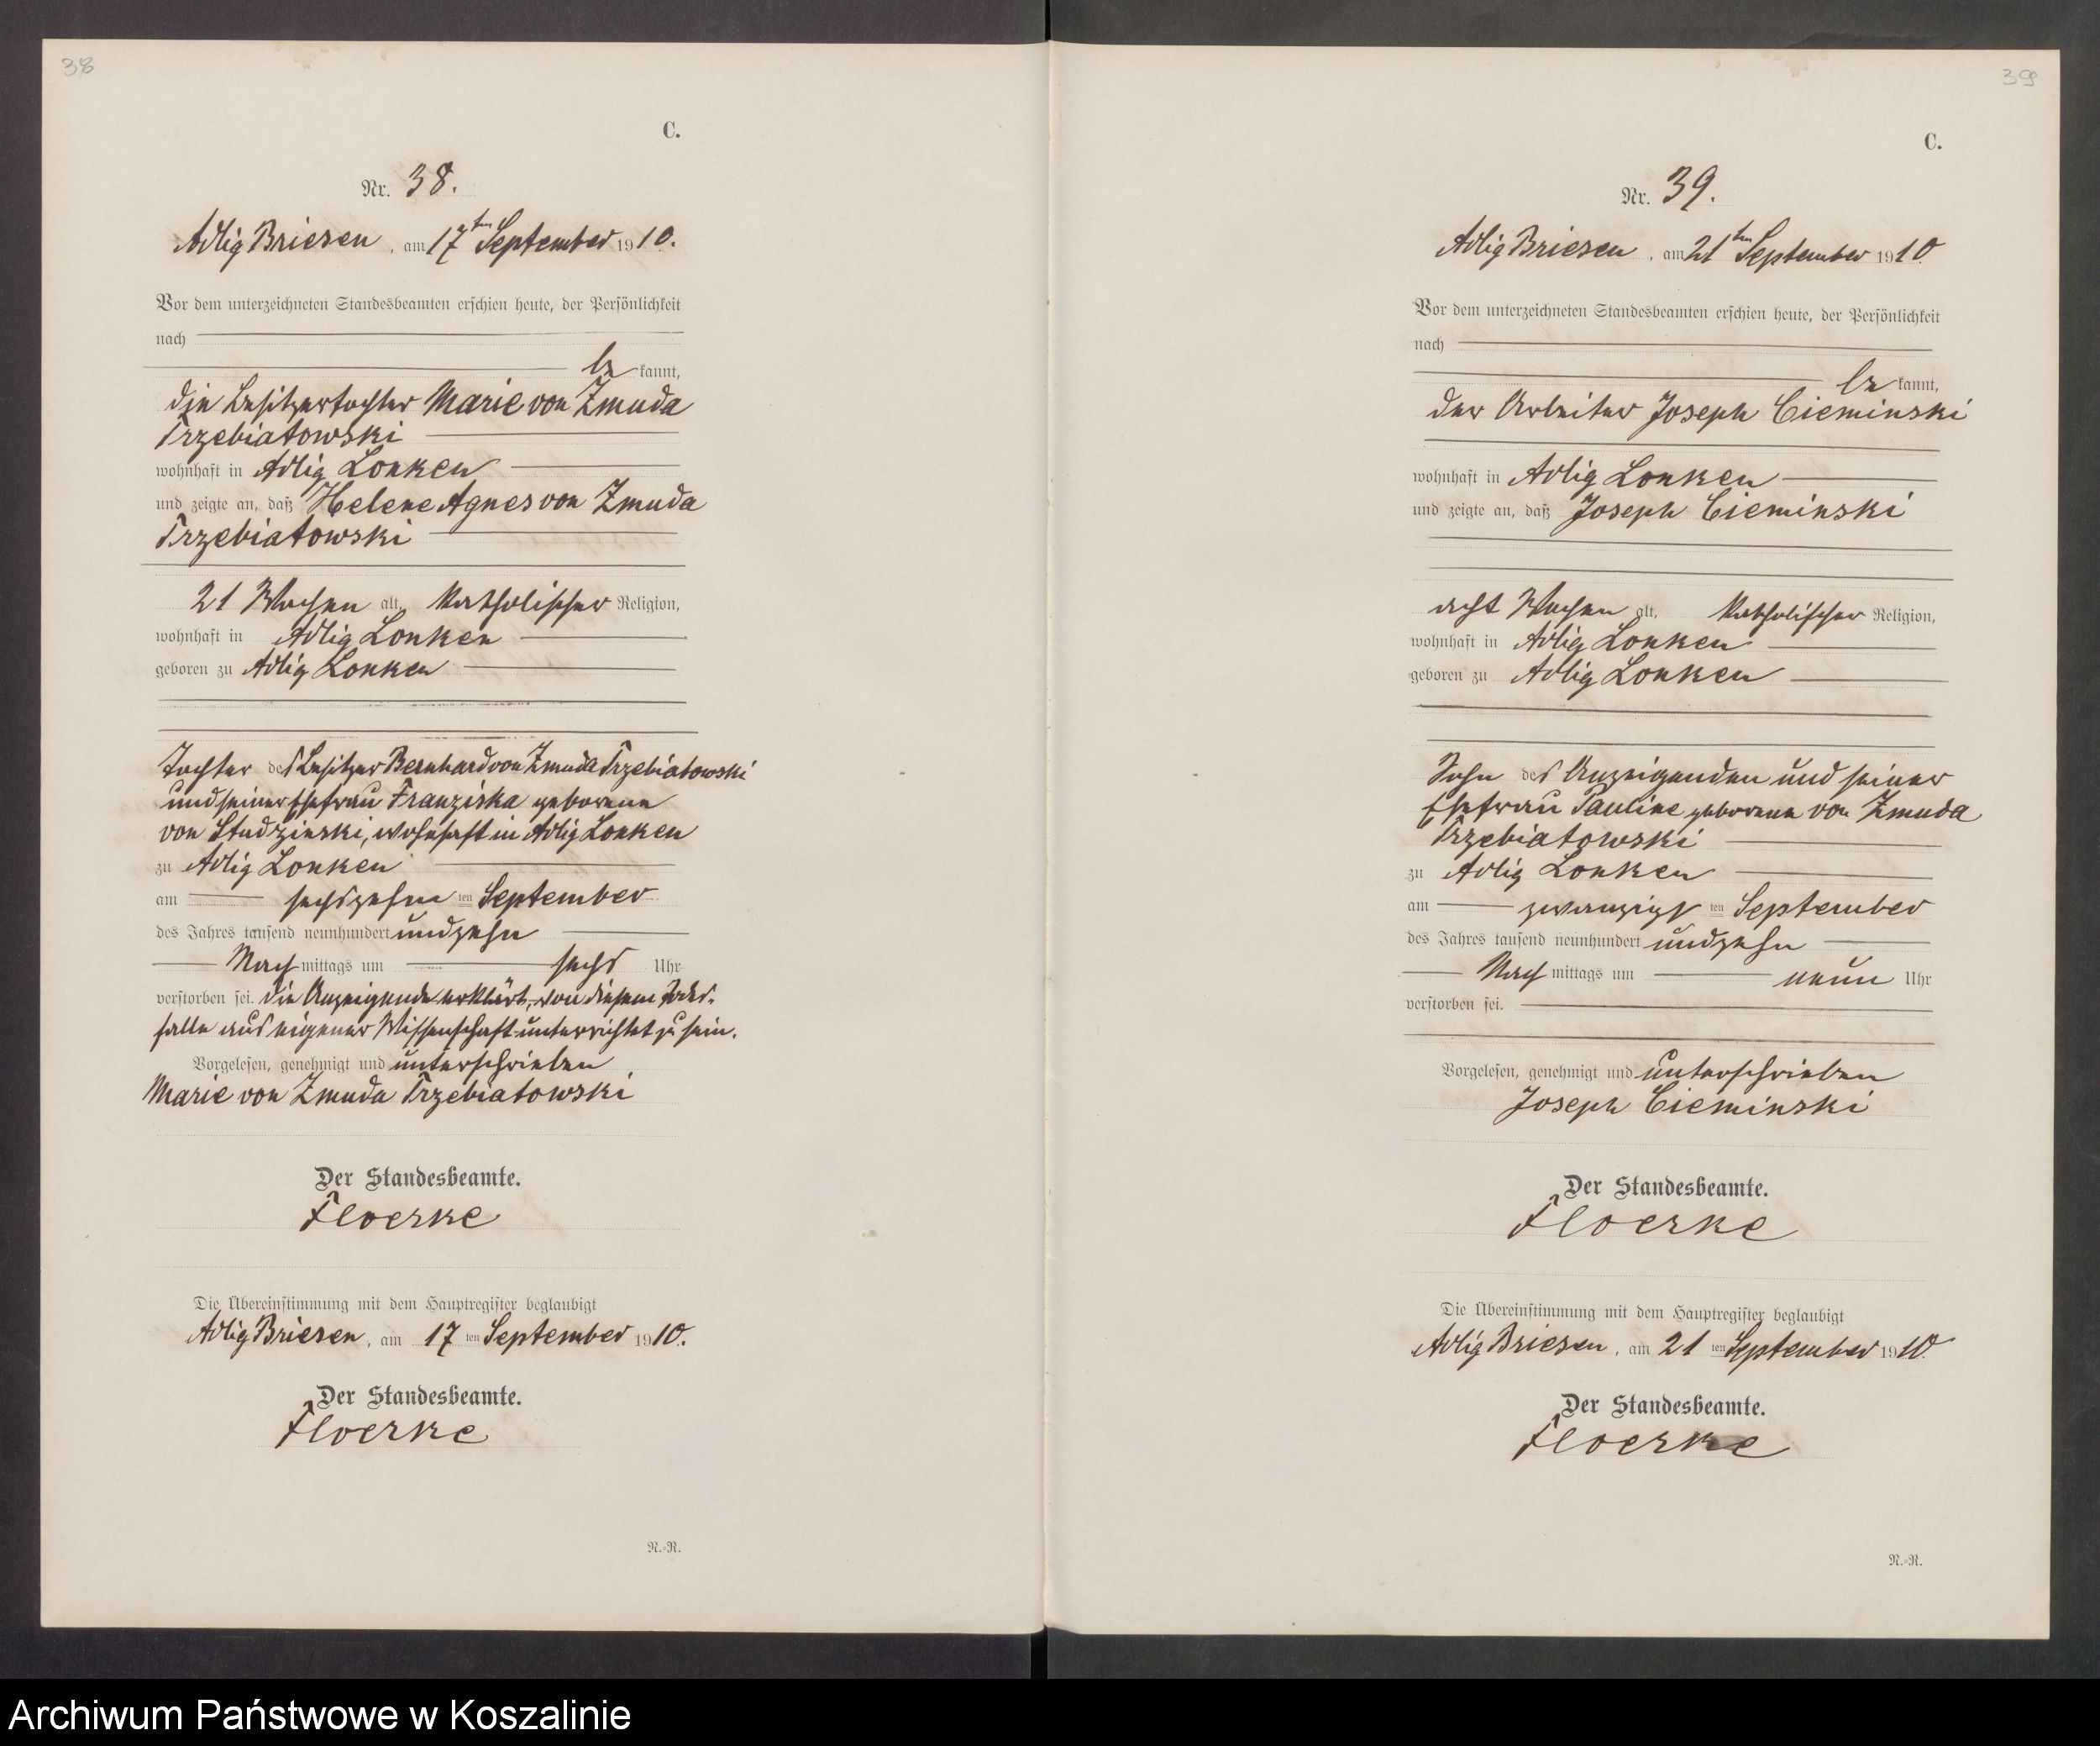 38
C.
Nr. 38.
Adlig Briesen, am 17ten September 1910.
Vor dem unterzeichneten Standesbeamten erschien heute, der Persönlichkeit
nach
be kannt,
die Besitzertochter Marie von Zmuda
Trzebiatowski
wohnhaft in Adlig Lonken
und zeigte an, daß Helene Agnes von Zmuda
Trzebiatowski
21 Wochen alt, katholischer Religion,
wohnhaft in Adlig Lonken
geboren zu Adlig Lonken
Tochter des Besitzer Bernhard von Zmuda Trzebiatowski
und seiner Ehefrau Franziska geborene
von Studzinski, wohnhaft in Adlig Lonken
zu Adlig Lonken
am sechszehn ten September
des Jahres tausend neunhundert und zehn
Nach mittags um sechs Uhr
verstorben sei. Die Anzeigende erklärt, von diesem Todes-
falle aus eigener Wissenschaft unterrichtet zu sein.
Vorgelesen, genehmigt und unterschrieben
Marie von Zmuda Trzebiatowski
Der Standesbeamte.
Floerke
Die Übereinstimmung mit dem Hauptregister beglaubigt
Adlig Briesen, am 17 ten September 1910.
Der Standesbeamte.
Floerke
N.-R.
39
C.
Nr. 39.
Adlig Briesen, am 21ten September 1910
Vor dem unterzeichneten Standesbeamten erschien heute, der Persönlichkeit
nach
be kannt,
der Arbeiter Joseph Cieminski
wohnhaft in Adlig Lonken
und zeigte an, daß Joseph Cieminski
acht Wochen alt, katholischer Religion,
wohnhaft in Adlig Lonken
geboren zu Adlig Lonken
Sohn des Anzeigenden und seiner
Ehefrau Pauline geborene von Zmuda
Trzebiatowski
zu Adlig Lonken
am zwanzigs ten September
des Jahres tausend neunhundert und zehn
Nach mittags um neun Uhr
verstorben sei.
Vorgelesen, genehmigt und unterschrieben
Joseph Cieminski
Der Standesbeamte.
Floerke
Die Übereinstimmung mit dem Hauptregister beglaubigt
Adlig Briesen, am 21 ten September 1910.
Der Standesbeamte.
Floerke
N.-R.
Archiwum Państwowe w Koszalinie